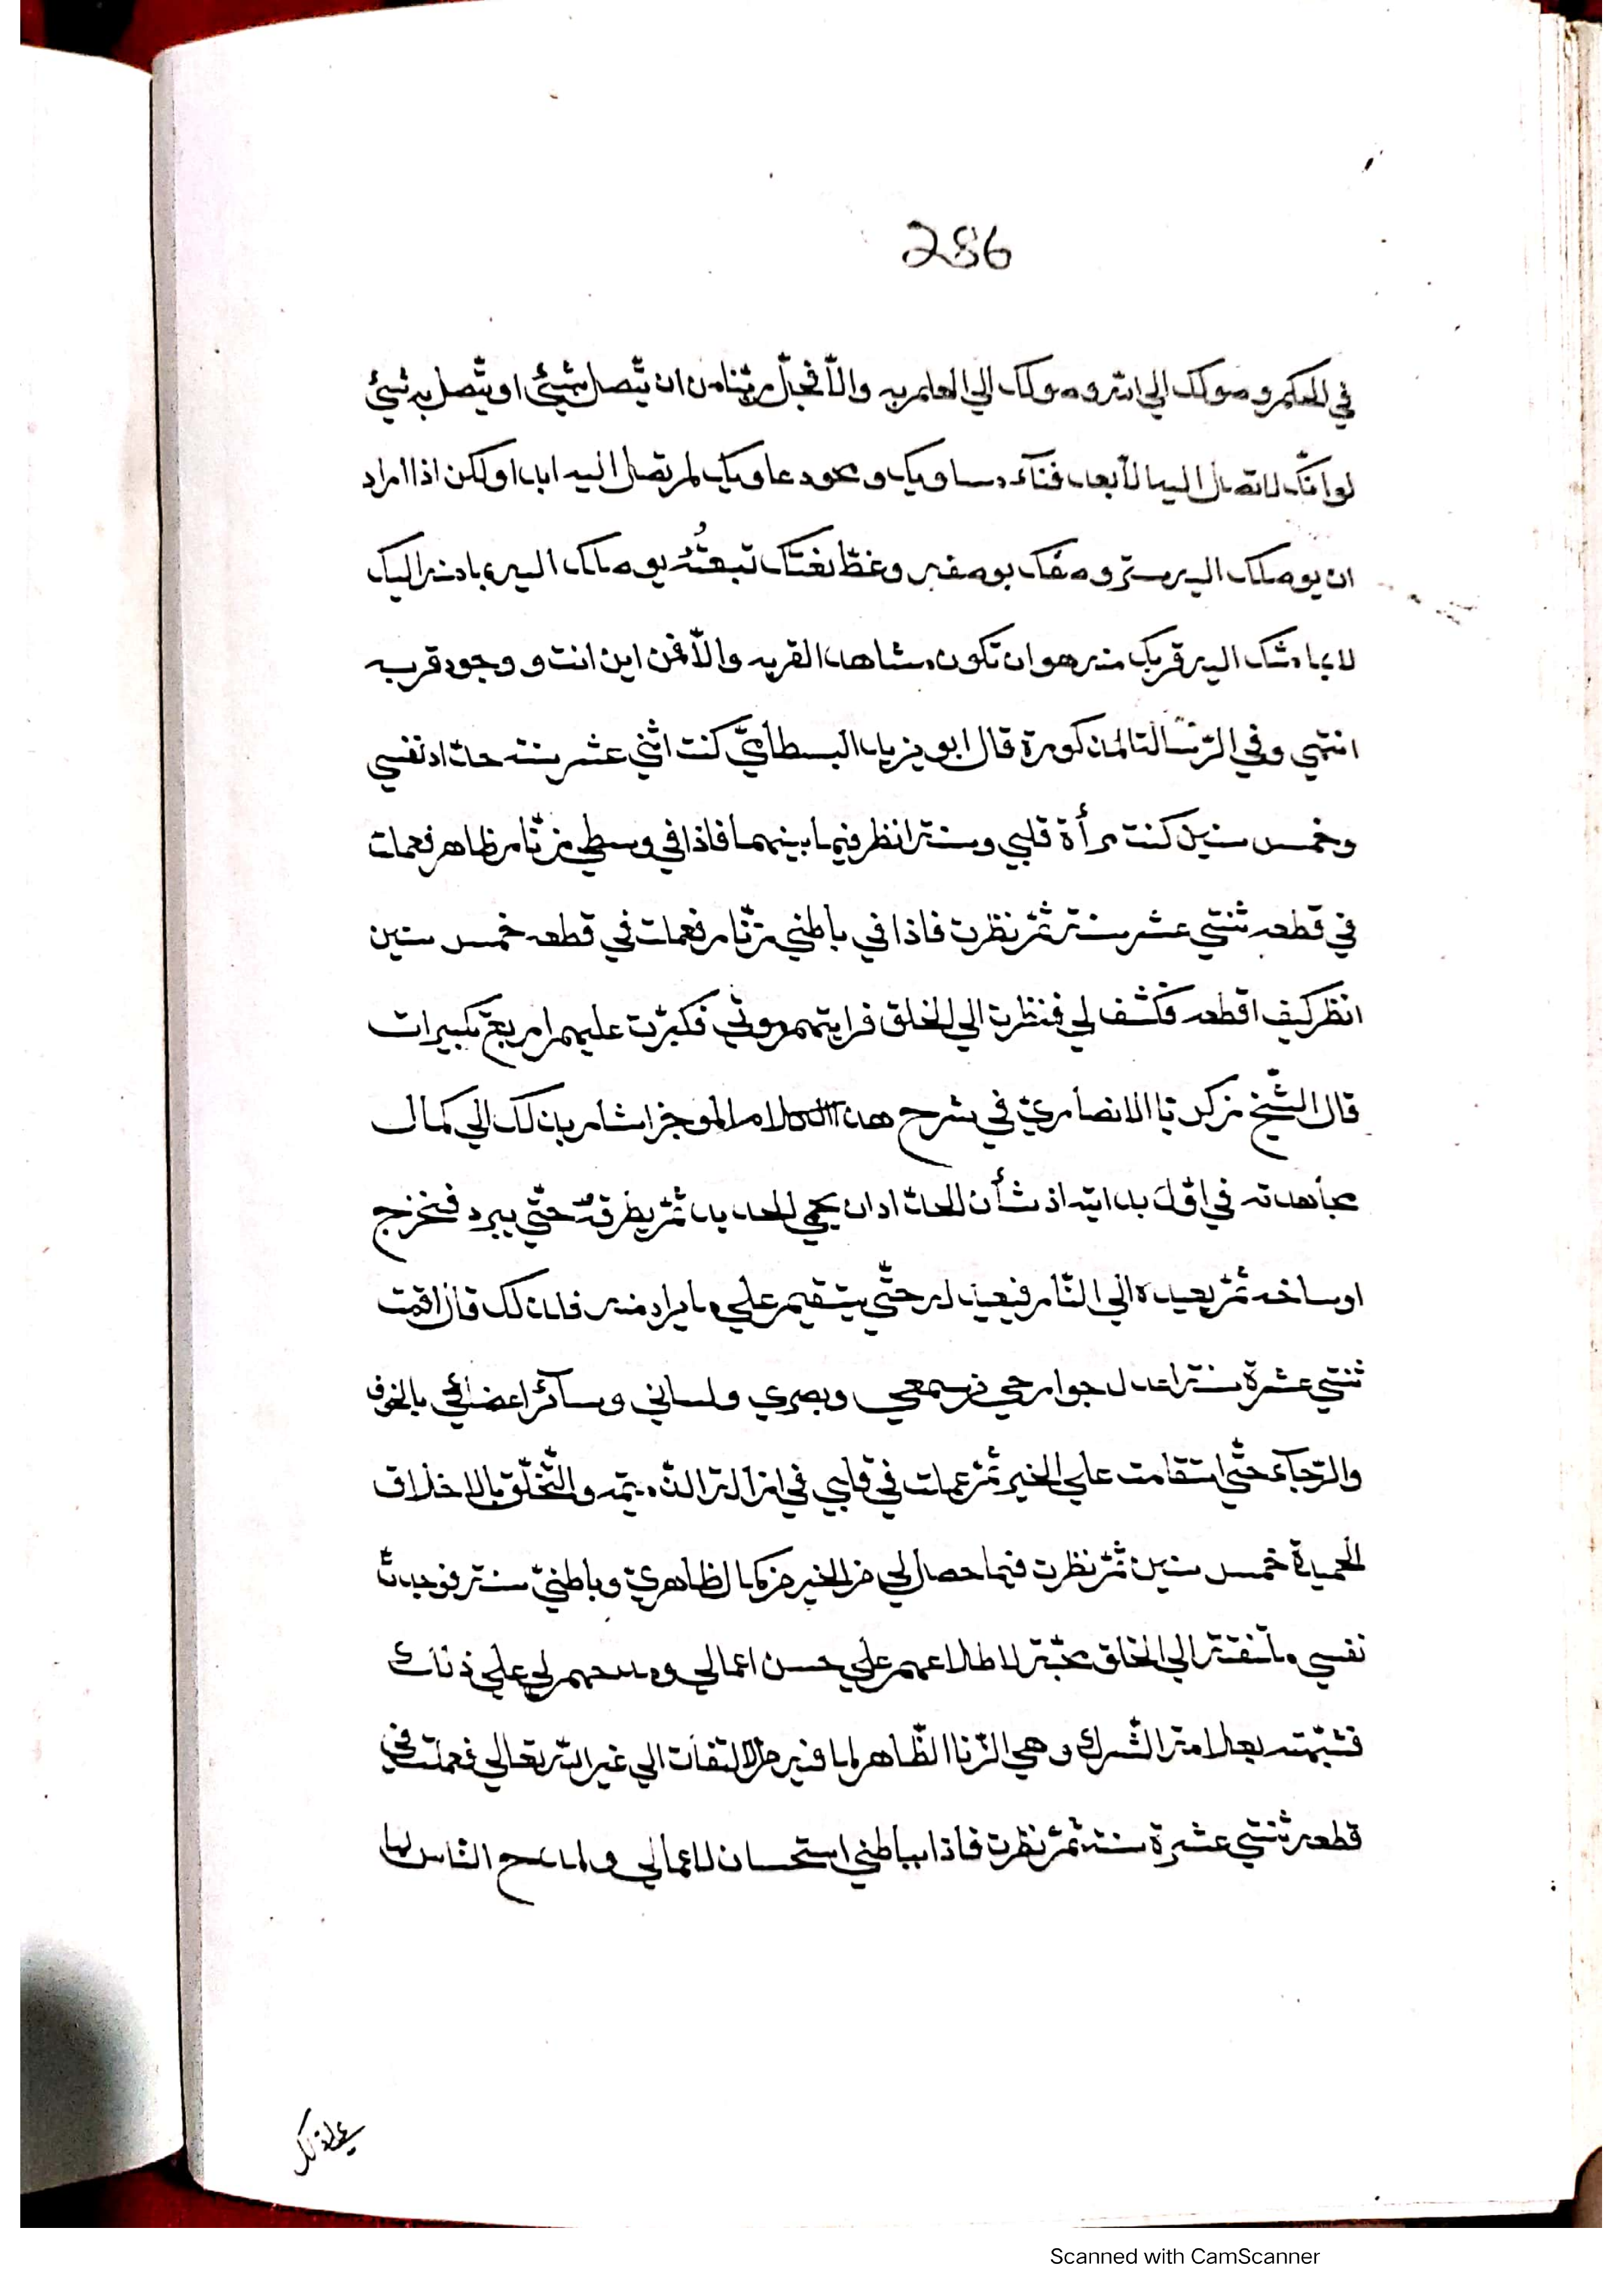 286
في الحكم وصولك إلي الله وصولك إلي العلم به والّا فجلّ ربّنا من ان يتّصل بشيئ او يتّصل به شيئ
لو انّك لا تصل اليه الّا بعد فنآء مساويك ومحود عاويك لم تصل اليه ابدا ولكن اذا اراد
ان يوصلك اليه ستر وصفك بوصفه وغطّا نعتك بنعته يوصلك اليه بما منه اليك
لا بما منك اليه قربك منه هو ان تكون مشاهدا لقربه والّا فمن اين انت و وجود قربه
انتهي وفي الرّسالة المذكورة قال ابو يزيد البسطاميّ كنت اثني عشر سنة حدّاد نفسي
وخمس سنين كنت مرأة قلبي وسنة انظر فيما بينهما فاذا في وسطي زنّار ظاهر فعملت
في قطعه ثنتي عشر سنة ثمّ نظرت فاذا في باطني زنّار فعملت في قطعه خمس سنين
انظر كيف اقطعه فكُشف لي فنظرت الي الخلق فرايتهم موتي فكبّرت عليهم اربع تكبيرات
قال الشّيخ زكريّا الانصاريّ في شرح هذا الكلام الموجز اشار بذلك الي كمال
مجاهدته في اوّل بدايته اذ شأن الحدّاد ان يحمي الحديد ثمّ يطرقه حتّي يبرد فتخرج
اوساخه ثمّ يعيده الي النّار فيعيد له حتّي يستقيم علي ما يراد منه فلذلك قال اقمت
ثنتي عشرة سنة اعدل جوارحي من سمعي وبصري ولساني وسآئر اعضائي بالخوف
والرّجآء حتّي استقامت علي الخير ثمّ عملت في قلبي في ازالة الذّميمة والتّخلّق بالاخلاق
الحميدة خمس سنين ثمّ نظرت فيما حصل لي من الخير من كمال ظاهريّ وباطنيّ سنة فوجدتّ
نفسي ملتفتة الي الخلق محبّة لاطلاعهم علي حسن اعمالي ومدحهم لي علي ذلك
فشبّهته بعلامة الشّرك وهي الزّنّار الظّاهر لما فيه من الالتفات الي غير الله تعالي فعملت في
قطعه ثنتي عشرة سنة ثمّ نظرت فاذا بباطني استحسان لاعمالي ولمدح النّاس لها